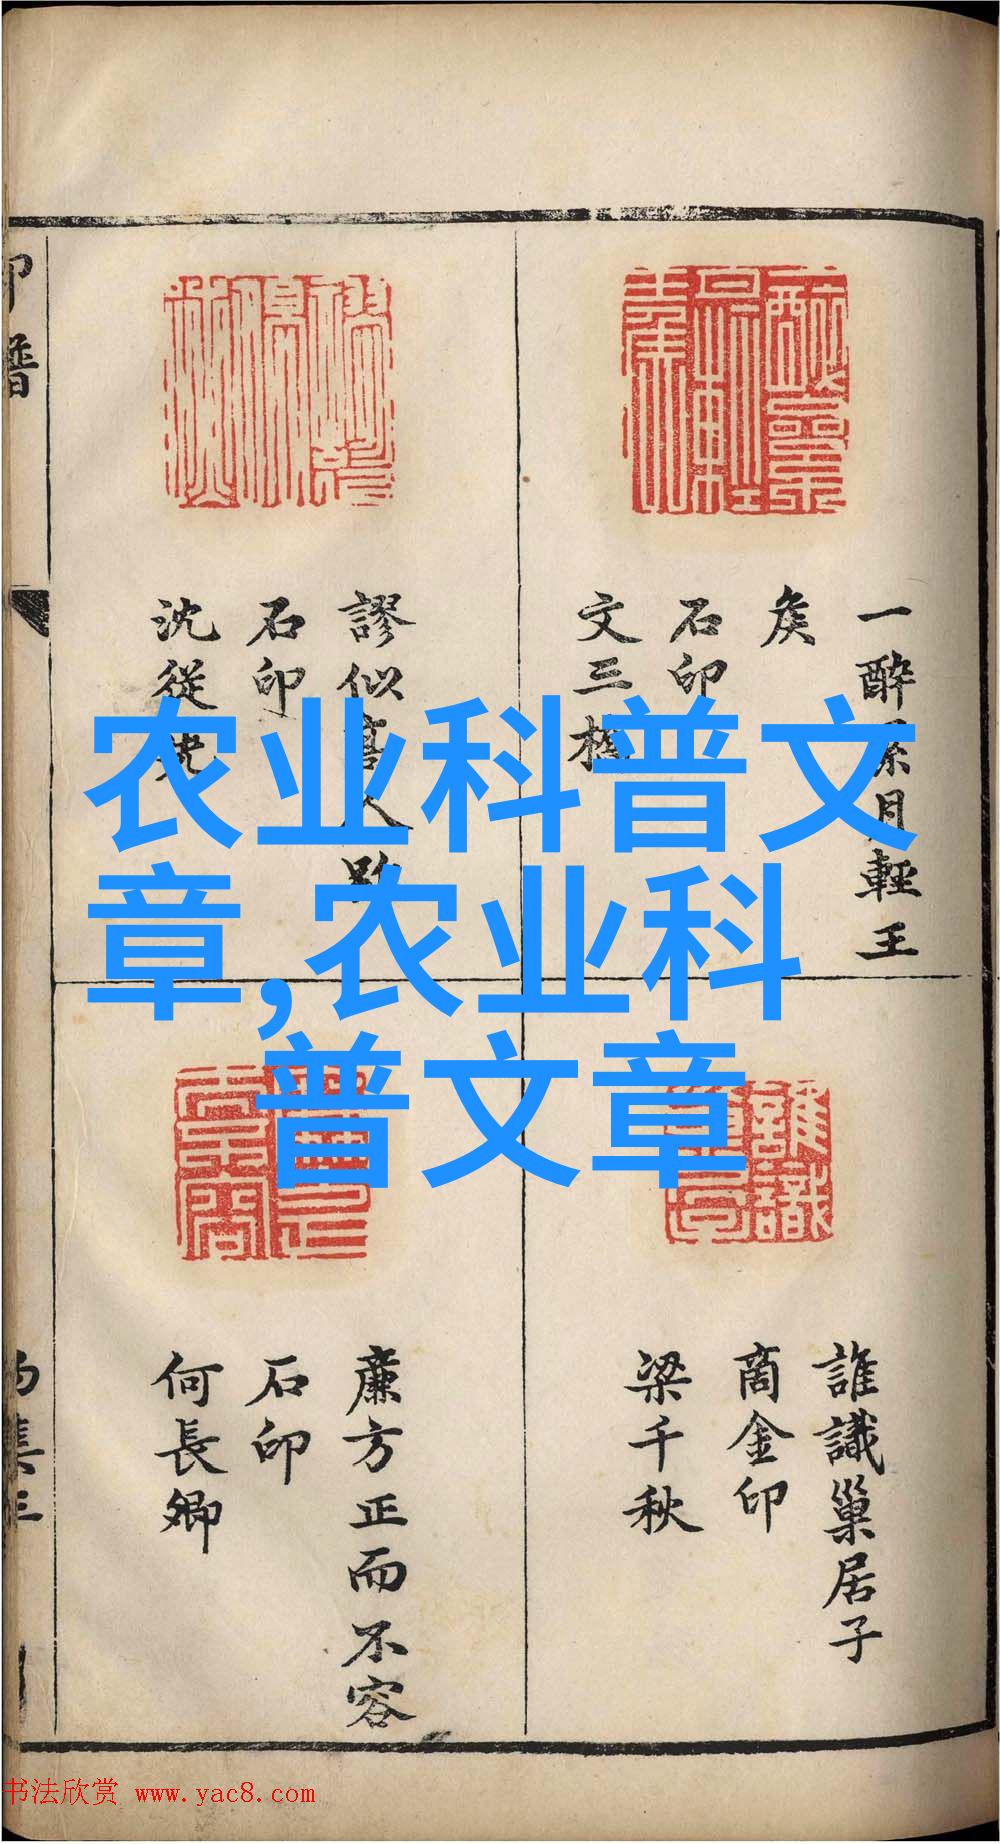 一醉累月輕王
矦
石印
文三橋
謬似
石印
沈從
农业科普文
章,农业科
普文章
誰識巢居子
商金印
梁千秋
廉方正而不容
石印
何長卿
印譜
书法欣赏 www.yac8.com